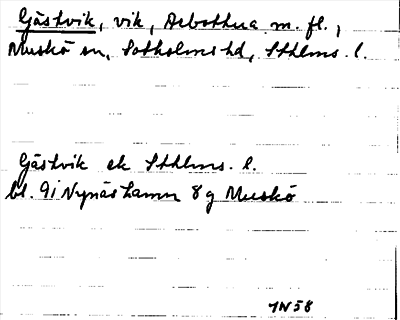 Gästvik, vik, Arbottna m. fl.,
Muskö sn, Sotholms hd, Sthlms. l.
Gästvik ek Sthlms. l.
bl. 9i Nynäshamn 8g Muskö
1N58